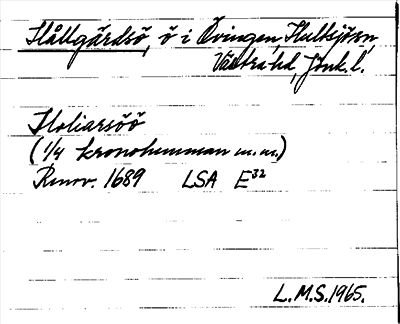 Hållgårdsö, ö i Övingen, Hultsjö sn,
Västra hd, Jönk. l.
Holiarsöö
(1/4 kronohemman m.m.)
Renov. 1689 LSA E32
L.M.S. 1965.